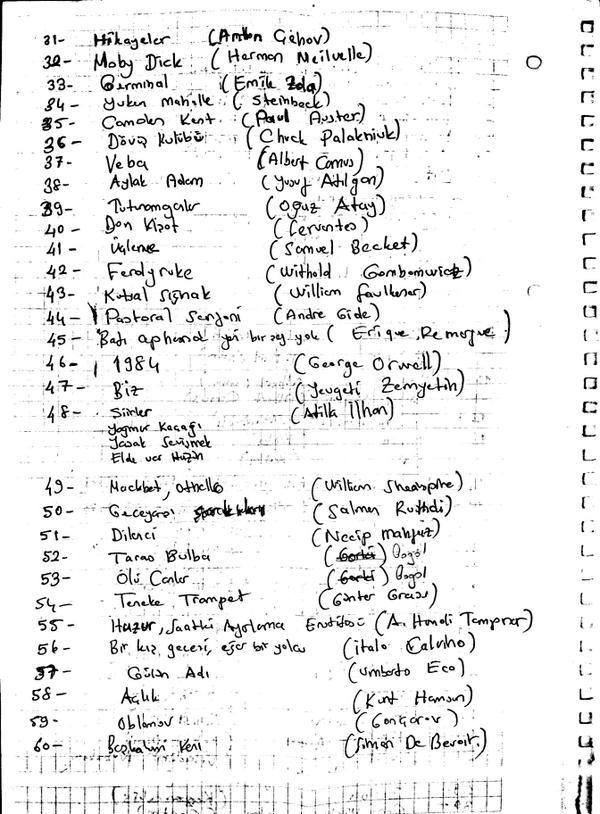 31- Hikayeler (Anton Çehov)
32- Moby Dick (Herman Meilvelle)
33- Germinal (Emile Zola)
34- Yukarı mahalle (Steinbeck)
35- Camdan Kent (Paul Auster)
36- Dövüş Kulübü (Chuck Palakniuk)
37- Veba (Albert Camus)
38- Aylak Adam (Yusuf Atılgan)
39- Tutunamayanlar (Oğuz Atay)
40- Don Kişot (Cervantes)
41- Üçleme (Samuel Becket)
42- Ferdyruke (Withold Gombomwicz)
43- Kutsal Sığınak (William Faulkener)
44- Pastoral Senfoni (Andre Gide)
45- Batı cephesinde yeni bir şey yok (Erique Remarque)
46- 1984 (George Orwell)
47- Biz (Yevgeti Zemyetin)
48- Şiirler (Atilla İlhan)
Yağmur Kaçağı
Yasak Sevişmek
Elde var Hüzün
49- Machbet, Othello (William Sheaspire)
50- Geceyarısı çocukları (Salman Rushdi)
51- Dilenci (Necip Mahfuz)
52- Taras Bulba (Gogol)
53- Ölü Canlar (Gogol)
54- Teneke Trampet (Günter Grass)
55- Huzur, Saatleri Ayarlama Enstitüsü (A. Hamdi Tanpınar)
56- Bir kış gecesi, eğer bir yolcu (İtalo Calvino)
57- Gülün Adı (Umberto Eco)
58- Açlık (Knut Hamsun)
59- Oblamov (Gonçarov)
60- Başkalarının Kanı (Simon De Beauvoir)